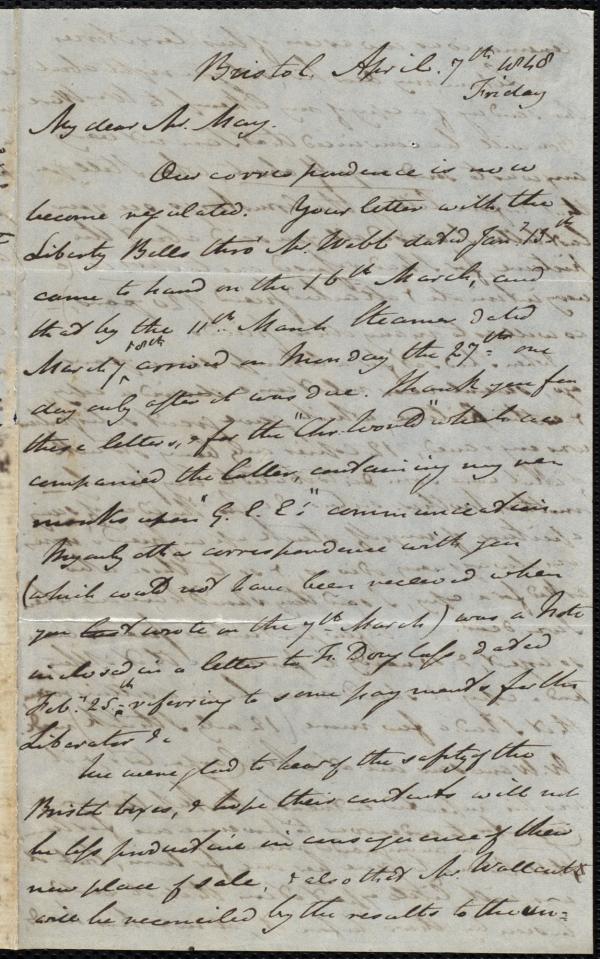 Bristol, April. 7th 1848
Friday
My dear Mr. May.
Our correspondence is now
become regulated. Your letter with the
Liberty Bells thro' Mr. Webb dated Jany 13th
came to hand on the 16th March, and
that by the 11th March Steamer dated
March 7 & 8th arrived on Monday the 27th one
day only after it was due. Thank you for
these letters, & for the "Chr. World" which ac=
companied the latter, containing my re=
marks upon "G. E. E's" communication
My only other correspondence with you
(which could not have been received when
you wrote on the 7th March) was a Note
inclosed in a letter to F. Douglass dated
Feb. 25th referring to some payments for the
Liberator &c
We were glad to hear of the safety of the
Bristol boxes, & hope their contents will not
be less productive in consequence of their
new place of sale, & also that Mr. Wallcutt
will be reconciled by the results to the in=